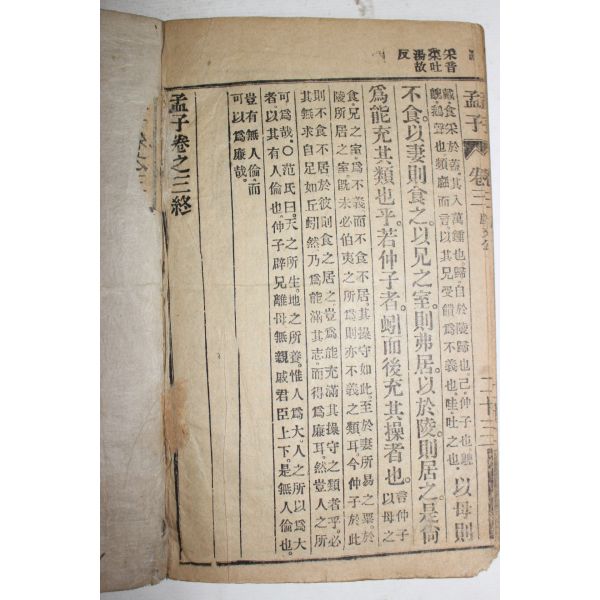 采音
菜吐
湯故
反
孟子 卷三
戴食采於蓋其入萬鍾也歸自於陵歸也己仲子也鶃
鶃鵝聲也頻顣而言以其兄受饋爲不義也哇吐之也
以母則
不食。以妻則食之。以兄之室。則弗居。以於陵。則居之。是尙
爲能充其類也乎。若仲子者。蚓而後充其操者也。
言仲子
以母之
食兄之室、爲不義而不食不居、其操守如此、至於妻所易之粟、於
陵所居之室、既未必伯夷之所爲、則亦不義之類耳、今仲子於此
則不食不居、於彼則食之居之、豈爲能充滿其操守之類者乎、必
其無求自足、如丘蚓然、乃爲能滿其志、而得爲廉耳、然豈人之所
可爲哉。○范氏曰、天之所生、地之所養、惟人爲大、人之所以爲大
者、以其有人倫也、仲子辟兄離母、無親戚君臣上下、是無人倫也、
豈有無人倫、而
可以爲廉哉。
孟子卷之三終